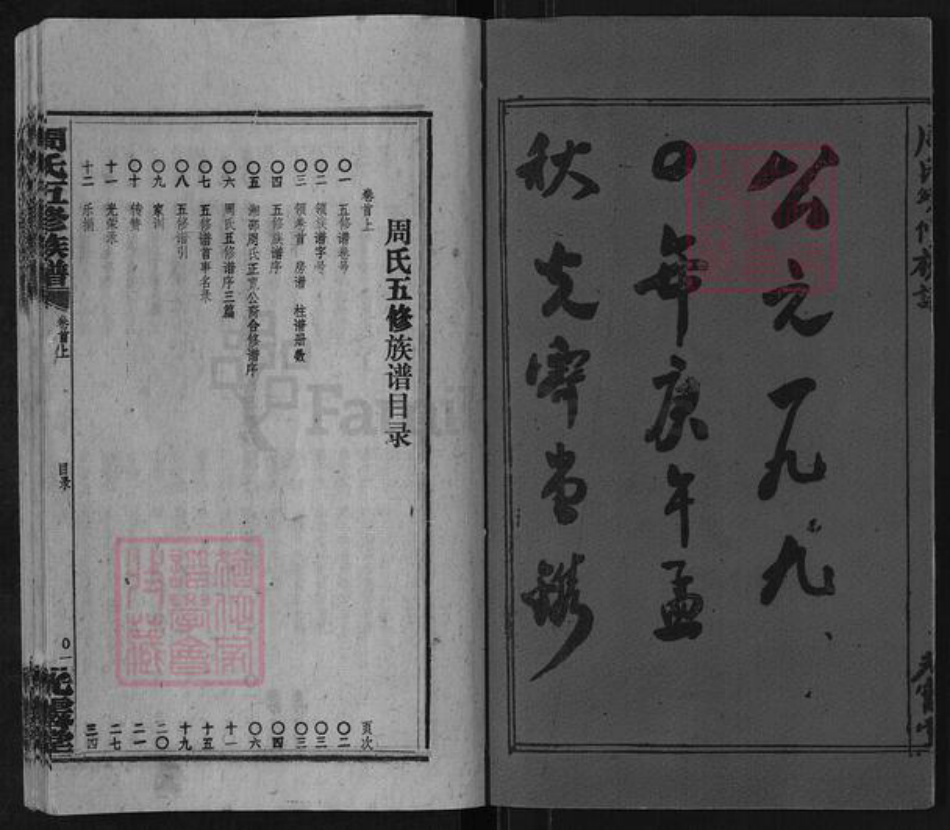 公元一九九
〇年庚午孟
秋光霁堂镌
周氏五修族谱目录
卷首上
页次
〇一 五修谱卷号 〇二
〇二 领族谱字号 〇三
〇三 领卷首 房谱 柱谱册数 〇三
〇四 五修族谱序 〇四
〇五 湘邵周氏正克公裔合修谱序 〇六
〇六 周氏五修谱序三篇 十一
〇七 五修谱首事名录 十五
〇八 五修谱引 十九
〇九 家训 二〇
〇十 传赞 二一
十一 光荣录 二七
十二 乐捐 三四
周氏五修族谱 卷首上
目录
〇一
光霁堂